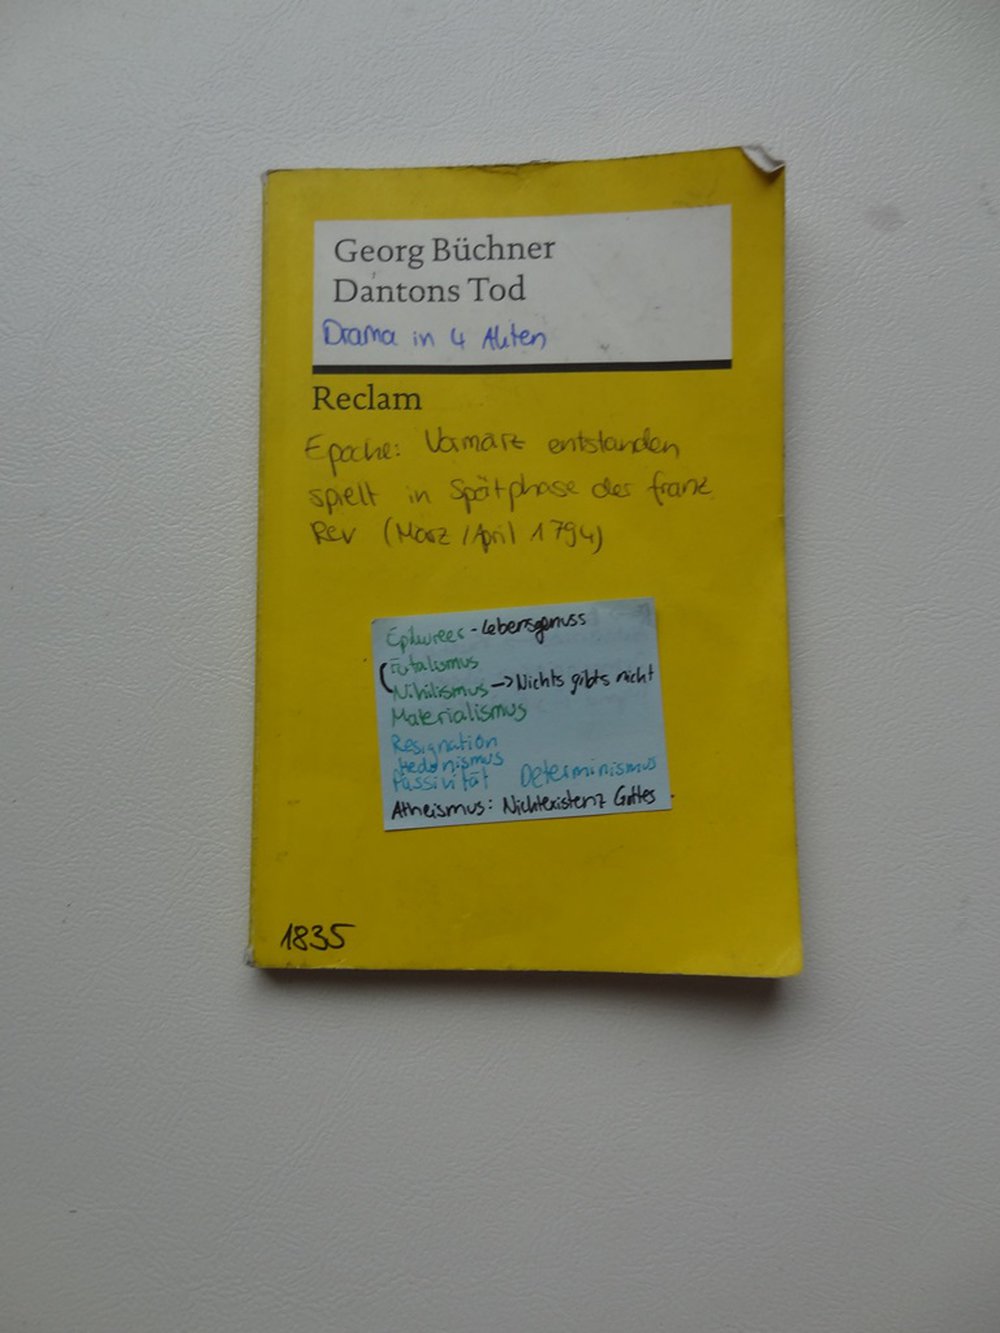 Georg Büchner
Dantons Tod
Drama in 4 Akten
Reclam
Epoche: Vormärz entstanden
spielt in Spätphase der franz.
Rev (März / April 1794)
Epikureer - Lebensgenuss
Fatalismus
Nihilismus -> Nichts gibts nicht
Materialismus
Resignation
Hedonismus
Passivität Determinismus
Atheismus: Nichtexistenz Gottes.
1835